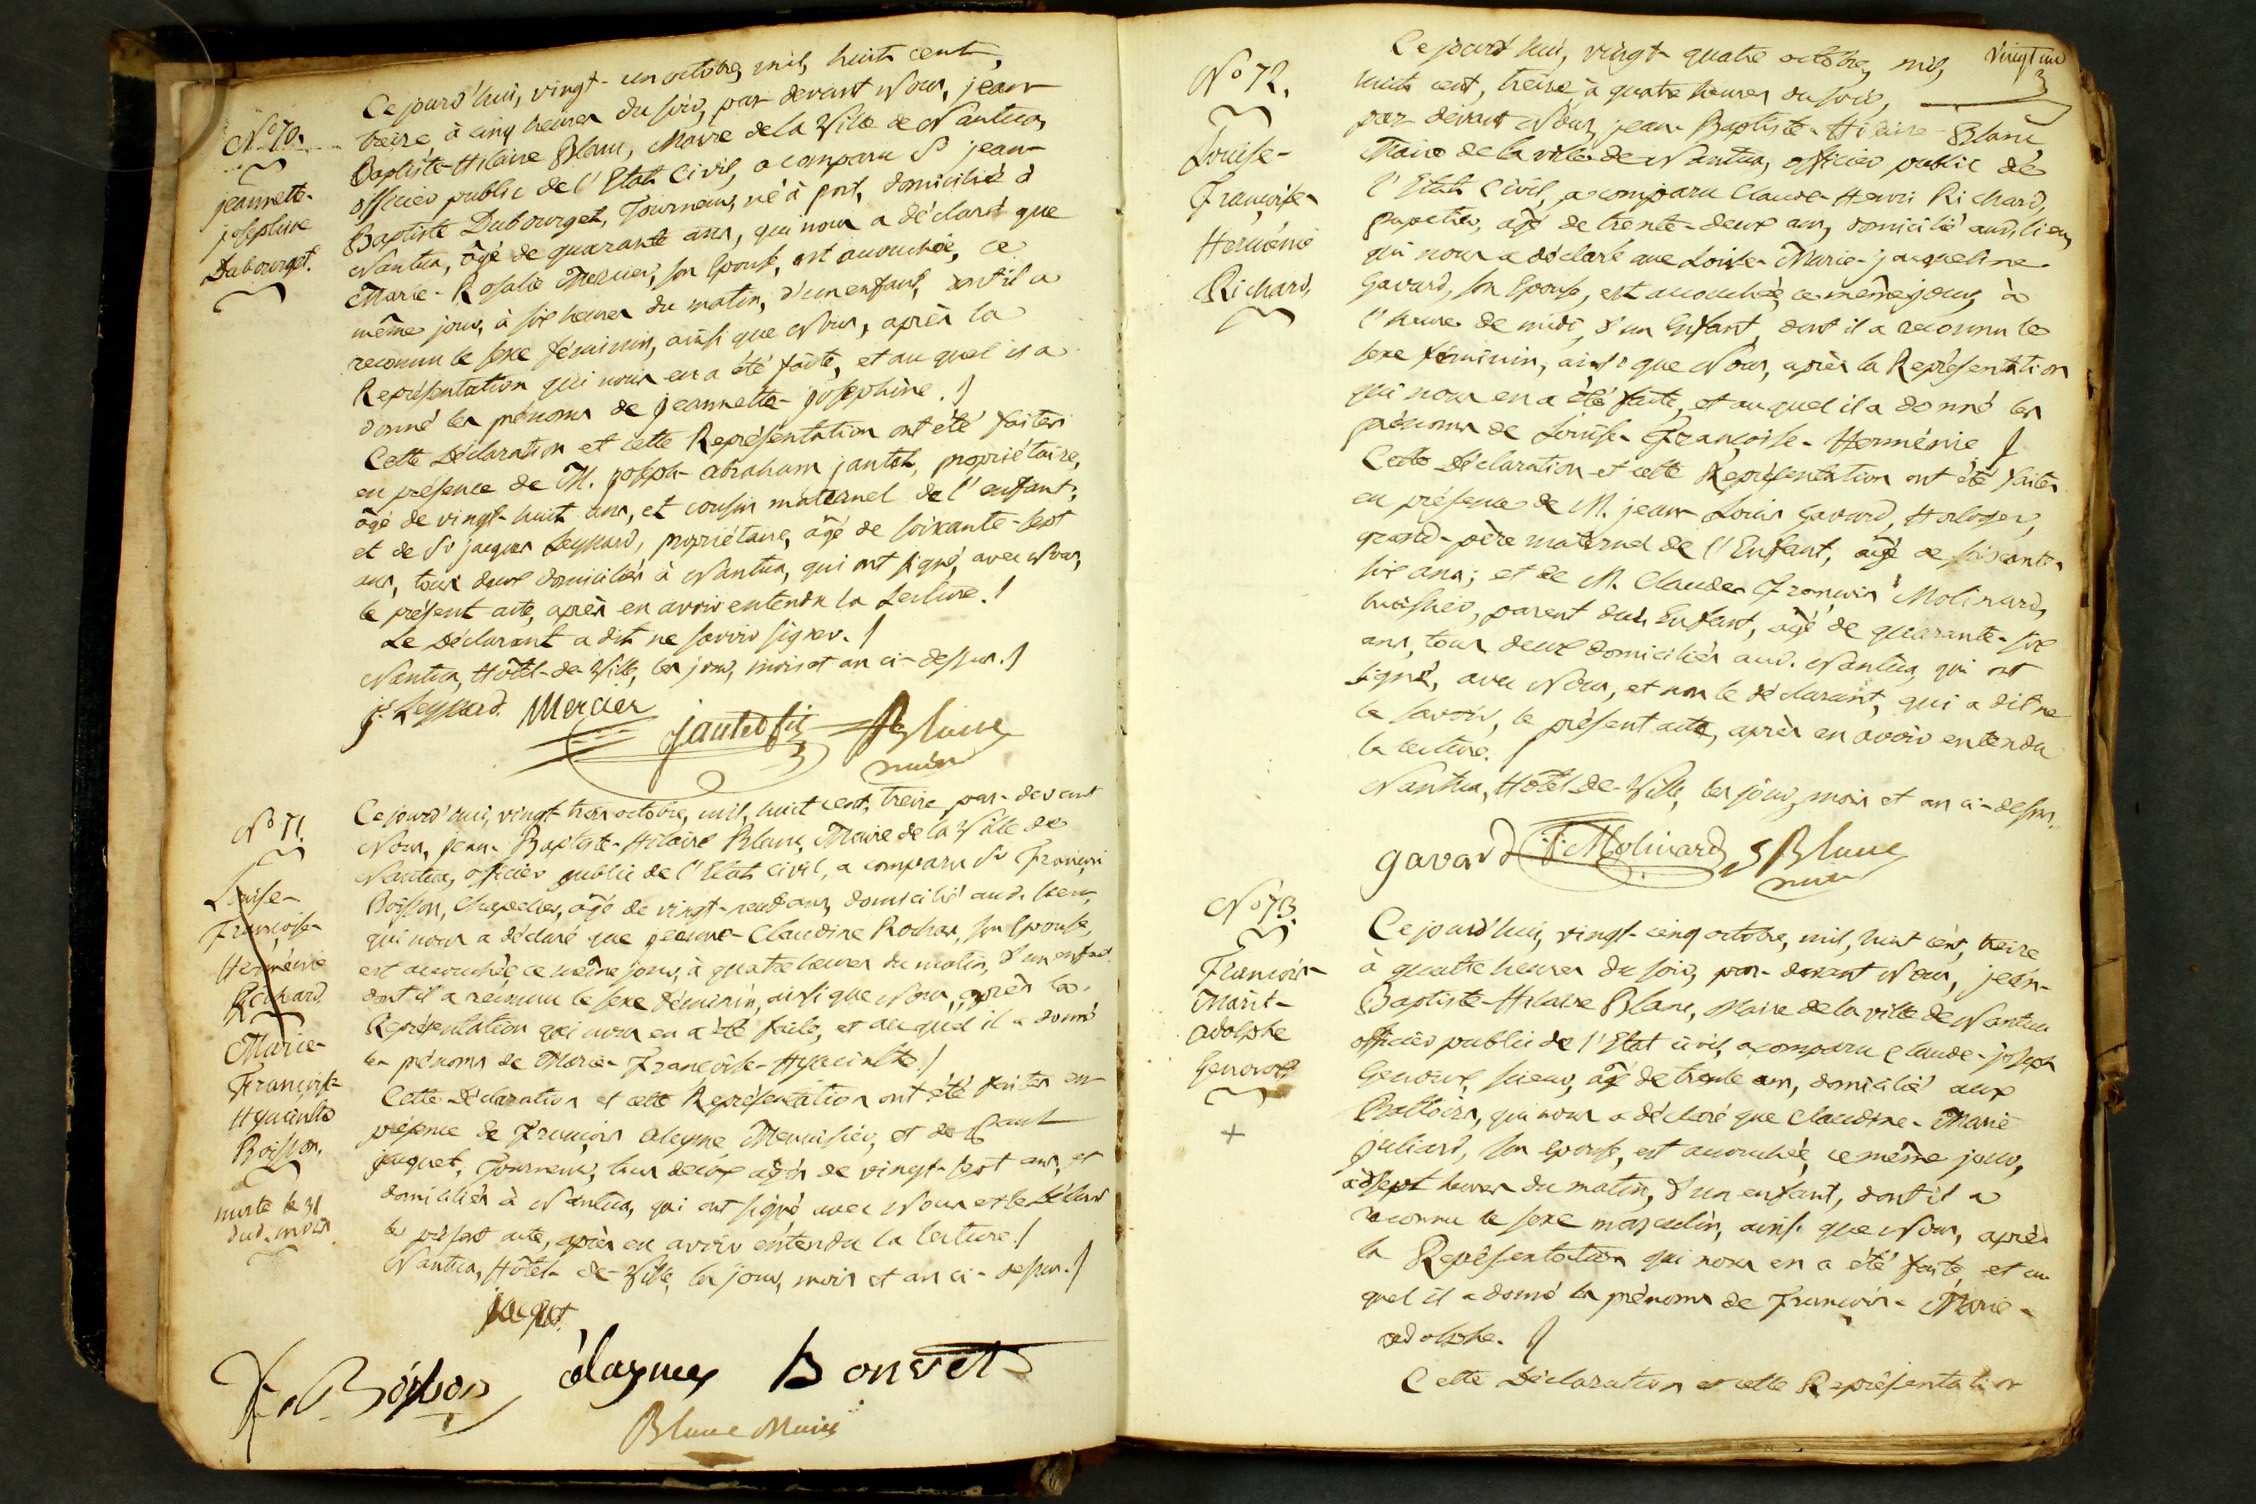 N.º 70.
jeannette-
josephine
Dubourget.
Ce jourd'hui, vingt-un octobre, mil, huit cent,
treize, à cinq heures du soir, par devant Nous, jean
Baptiste-Hilaire Blanc, Maire de la Ville de Nantua,
officier public de l'Etat Civil, a comparu Sr jean-
Baptiste Dubourget, Tourneur, né à port, domicilié à
Nantua, âgé de quarante ans, qui nous a déclaré que
Marie-Rosalie Mercier, son Epouse, est accouchée, ce
même jour, à six heures du matin, d'un enfant, dont il a
reconnu le sexe féminin, ainsi que Nous, après la
Représentation qui nous en a été faite, et au quel il a
donné les prénoms de jeannette-josephine. /
Cette Déclaration et cette Représentation ont été faites
en présence de M. joseph-abraham jantet, propriétaire,
âgé de vingt-huit ans, et cousin maternel de l'enfant;
et de Sr jacques Leynard, propriétaire, âgé de soixante-sept
ans, tous deux domiciliés à Nantua, qui ont signé, avec Nous,
le présent acte, après en avoir entendu la Lecture. /
Le Déclarant a dit ne savoir signer. /
Nantua, Hôtel-de-Ville, les jour, mois et an ci-dessus. /
js Leynard. Mercier
jantet fils Blanc
maire
N.º 71.
Louise-
Françoise-
Herménie
Richard
Marie-
Françoise-
Hyacinthe
Boisson.
morte le 31
dud. mois
Ce jourd'hui, vingt-trois octobre, mil, huit cent, treize par-devant
Nous, jean-Baptiste-Hilaire Blanc, Maire de la Ville de
Nantua, officier public de l'Etat Civil, a comparu Sr François
Boisson, Chapelier, âgé de vingt-neuf ans, domicilié aud. lieu,
qui nous a déclaré que jeanne-Claudine Rochas, son Epouse,
est accouchée, ce même jour, à quatre heures du matin, d'un enfant
dont il a reconnu le sexe féminin, ainsi que Nous, après la
Représentation qui nous en a été faite, et au quel il a donné
les prénoms de Marie-Françoise-Hyacinthe. /
Cette Déclaration et cette Représentation ont été faites en
présence de François Menuisier, et de Paul
jaquet, Tourneur, tous deux âgés de vingt-sept ans, et
domiciliés à Nantua, qui ont signé avec Nous et le Déclart
le présent acte, après en avoir entendu la lecture. /
Nantua, Hôtel-de-Ville, les jour, mois et an ci-dessus. /
jaquet.
F. Boisson
Blanc Maire
vingt un
N.º 72.
Louise-
Françoise-
Herménie
Richard,
Ce jourd'hui, vingt-quatre octobre, mil,
huit cent, treize, à quatre heures du soir,
par-devant Nous, jean-Baptiste-Hilaire-Blanc
Maire de la ville de Nantua, officier public de
l'Etat Civil, a comparu Claude-Henri Richard,
papetier, âgé de trente-deux ans, domicilié aud. lieu,
qui nous a déclaré que Louise-Marie-jacqueline
Gavard, son Epouse, est accouchée, ce même jour, à
l'heure de midi, d'un Enfant, dont il a reconnu le
sexe féminin, ainsi que Nous, après la Représentation
qui nous en a été faite, et au quel il a donné les
prénoms de Louise-Françoise-Herménie /
Cette Déclaration et cette Représentation ont été faites
en présence de M. jean-Louis Gavard, Horloger,
grand-père maternel de l'Enfant, âgé de soixante-
six ans; et de M. Claude-François Molinard,
huissier, parent dud. Enfant, âgé de quarante-six
ans, tous deux domiciliés aud. Nantua, qui ont
signé, avec Nous, et non le déclarant, qui a dit ne
le savoir, le présent acte, après en avoir entendu
la lecture. /
Nantua, Hôtel-de-Ville, les jour, mois et an ci-dessus.
gavard f. Molinard Blanc
maire
N.º 73.
François-
Marie-
adolphe
Genoux
+
Ce jourd'hui, vingt-cinq octobre, mil, huit cent, treize
à quatre heures du soir, par-devant Nous, jean-
Baptiste-Hilaire Blanc, Maire de la ville de Nantua
officier public de l'Etat civil, a comparu Claude-joseph
Genoux, scieur, âgé de trente ans, domicilié aux
Battoirs, qui nous a déclaré que Claudine-Marie
juliard, son epouse, est accouchée, ce même jour,
à sept heures du matin, d'un enfant, dont il a
reconnu le sexe masculin, ainsi que Nous, après
la Représentation qui nous en a été faite, et au
quel il a donné les prénoms de François-Marie-
adolphe. /
Cette Déclaration et cette Représentation